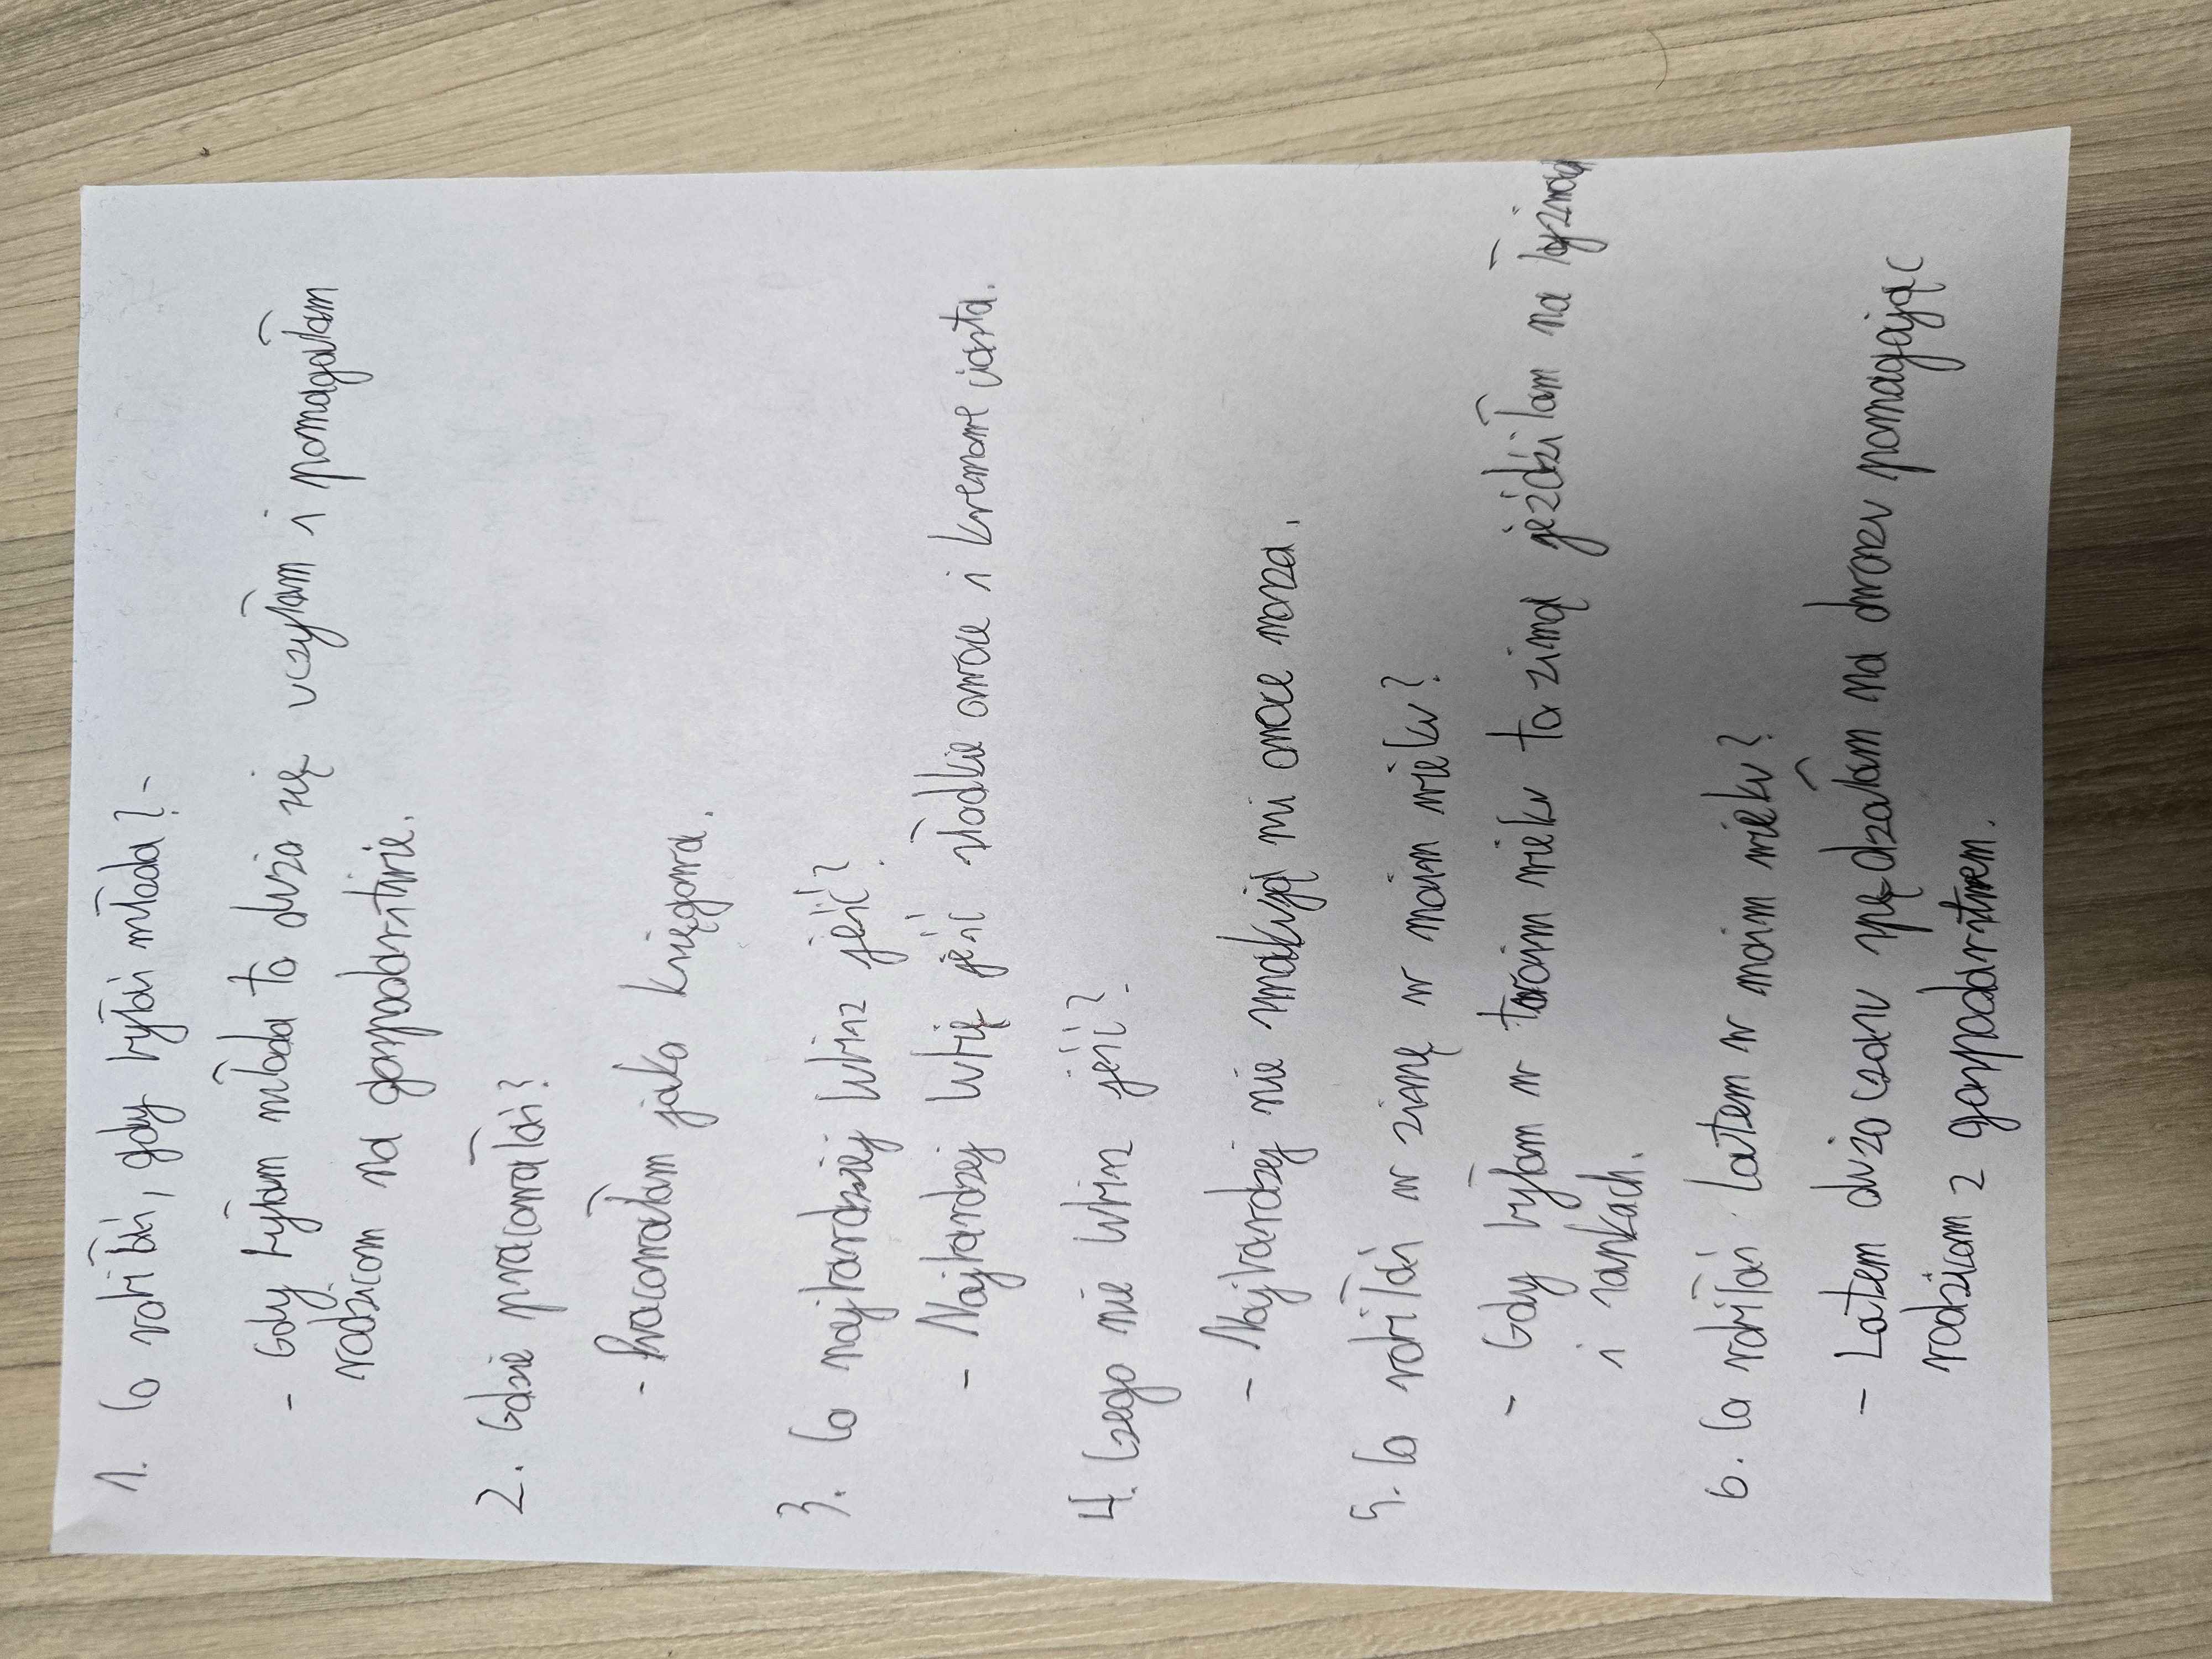 1. Co robiłaś, gdy byłaś młoda?
- Gdy byłam młoda to dużo się uczyłam i pomagałam
rodzicom na gospodarstwie.
2. Gdzie pracowałaś?
- Pracowałam jako księgowa.
3. Co najbardziej lubisz jeść?
- Najbardziej lubię jeść słodkie owoce i kremowe ciasta.
4. Czego nie lubisz jeść?
- Najbardziej nie smakują mi owoce morza.
5. Co robiłaś w zimę w moim wieku?
- Gdy byłam w twoim wieku to zimą jeździłam na łyżwach
i sankach.
6. Co robiłaś latem w moim wieku?
- Latem dużo czasu spędzałam na dworzu pomagając
rodzicom z gospodarstwem.